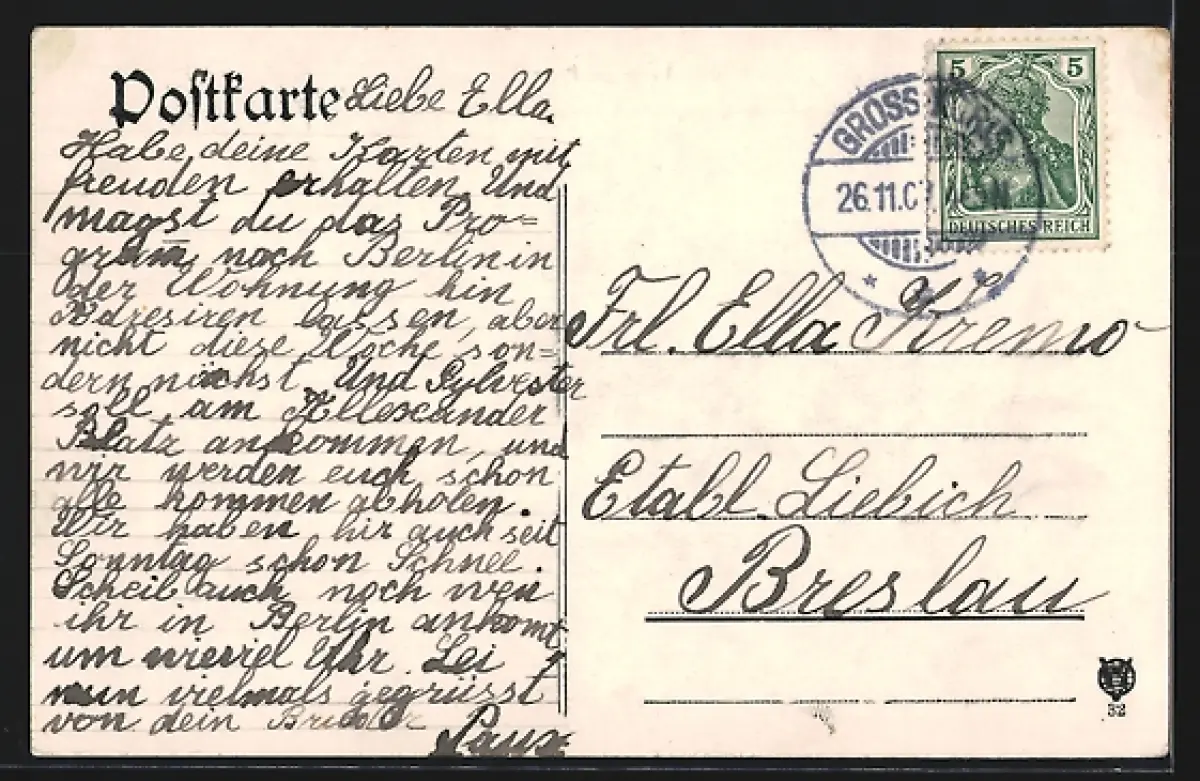 Postkarte Liebe Ella.
Habe deine Karten mit
freuden erhalten. Und
magst du das Pro=
gram̅ nach Berlin in
der Wohnung hin
Adresiren lassen, aber
nicht diese Woche son=
dern nächst. Und Sylvester
soll am Allexander
Blatz ankommen, und
wir werden euch schon
alle kommen abholen.
Wir haben hir auch seit
Sonntag schon Schnee.
Scheib auch noch wen
ihr in Berlin ankomt,
um wieviel Uhr. Sei
nun vielmals gegrüsst
von dein Bruder
5 5
DEUTSCHES REICH
GROSS
26.11.07.
Frl. Ella Kremo
Etabl. Liebich
Breslau
32